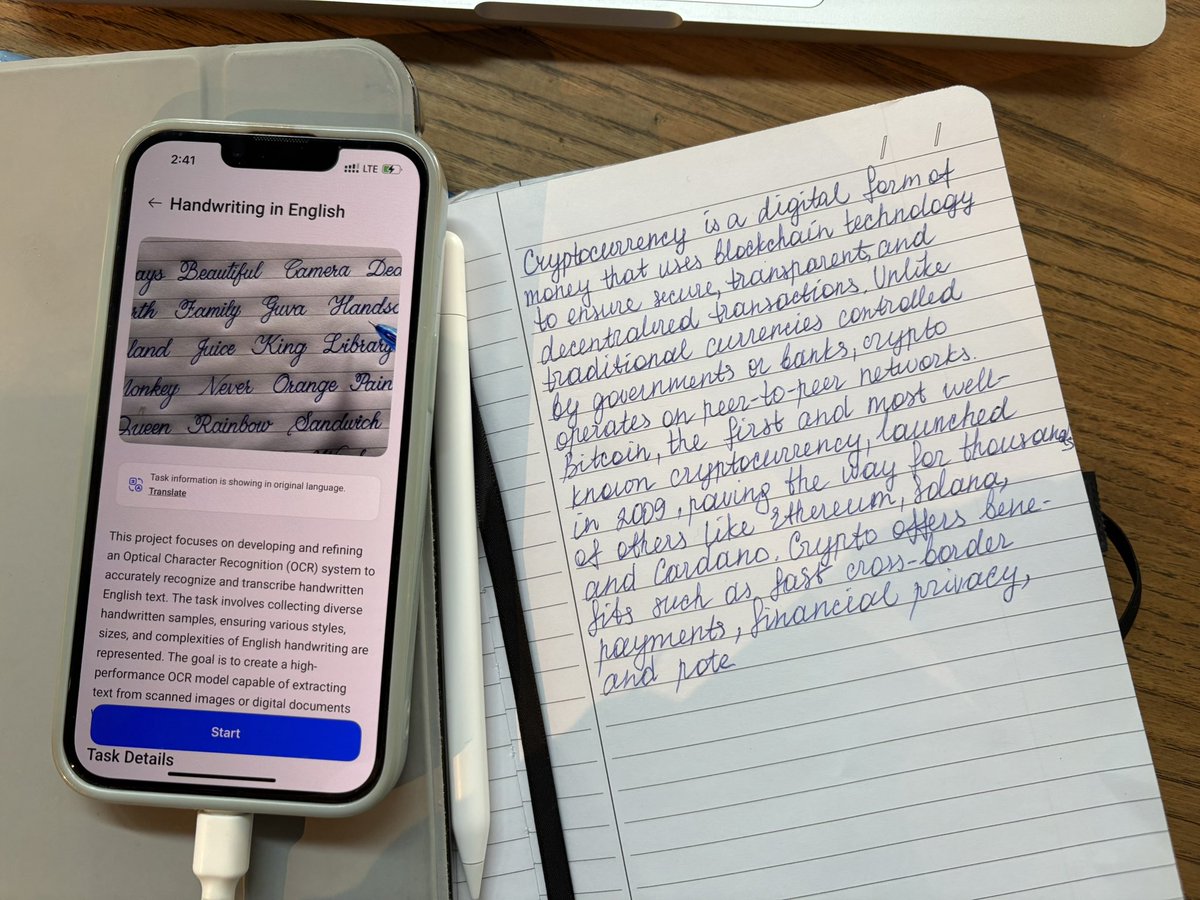 2:41
LTE
← Handwriting in English
ays Beautiful Camera Dea
rth Family Guva Handso
land Juice King Library
Monkey Never Orange Pain
Queen Rainbow Sandwich
Task information is showing in original language.
Translate
This project focuses on developing and refining
an Optical Character Recognition (OCR) system to
accurately recognize and transcribe handwritten
English text. The task involves collecting diverse
handwritten samples, ensuring various styles,
sizes, and complexities of English handwriting are
represented. The goal is to create a high-
performance OCR model capable of extracting
text from scanned images or digital documents
Start
Task Details
Cryptocurrency is a digital form of
money that uses blockchain technology
to ensure secure, transparent, and
decentralized transactions. Unlike
traditional currencies controlled
by governments or banks, crypto
operates on peer-to-peer networks.
Bitcoin, the first and most well-
known cryptocurrency, launched
in 2009, paving the way for thousands
of others like Ethereum, Solana,
and Cardano. Crypto offers bene-
fits such as fast cross-border
payments, financial privacy,
and pote